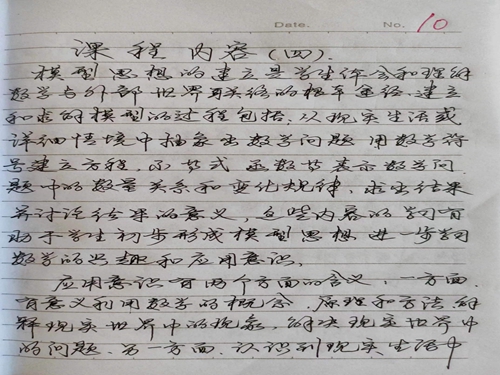 Date.
No. 10
课程内容(四).
模型思想的建立是学生体会和理解
数学与外部世界联系的基本途径.建立
和求解模型的过程包括:从现实生活或
详细情境中抽象出数学问题.用数学符
号建立方程、不等式、函数等表示数学问
题中的数量关系和变化规律,求出结果
并讨论结果的意义,这些内容的学习有
助于学生初步形成模型思想进一步学习
数学的兴趣和应用意识.
应用意识有两个方面的含义,一方面.
有意义利用数学的概念、原理和方法解
释现实世界中的现象,解决现实世界中
的问题.另一方面.认识到现实生活中